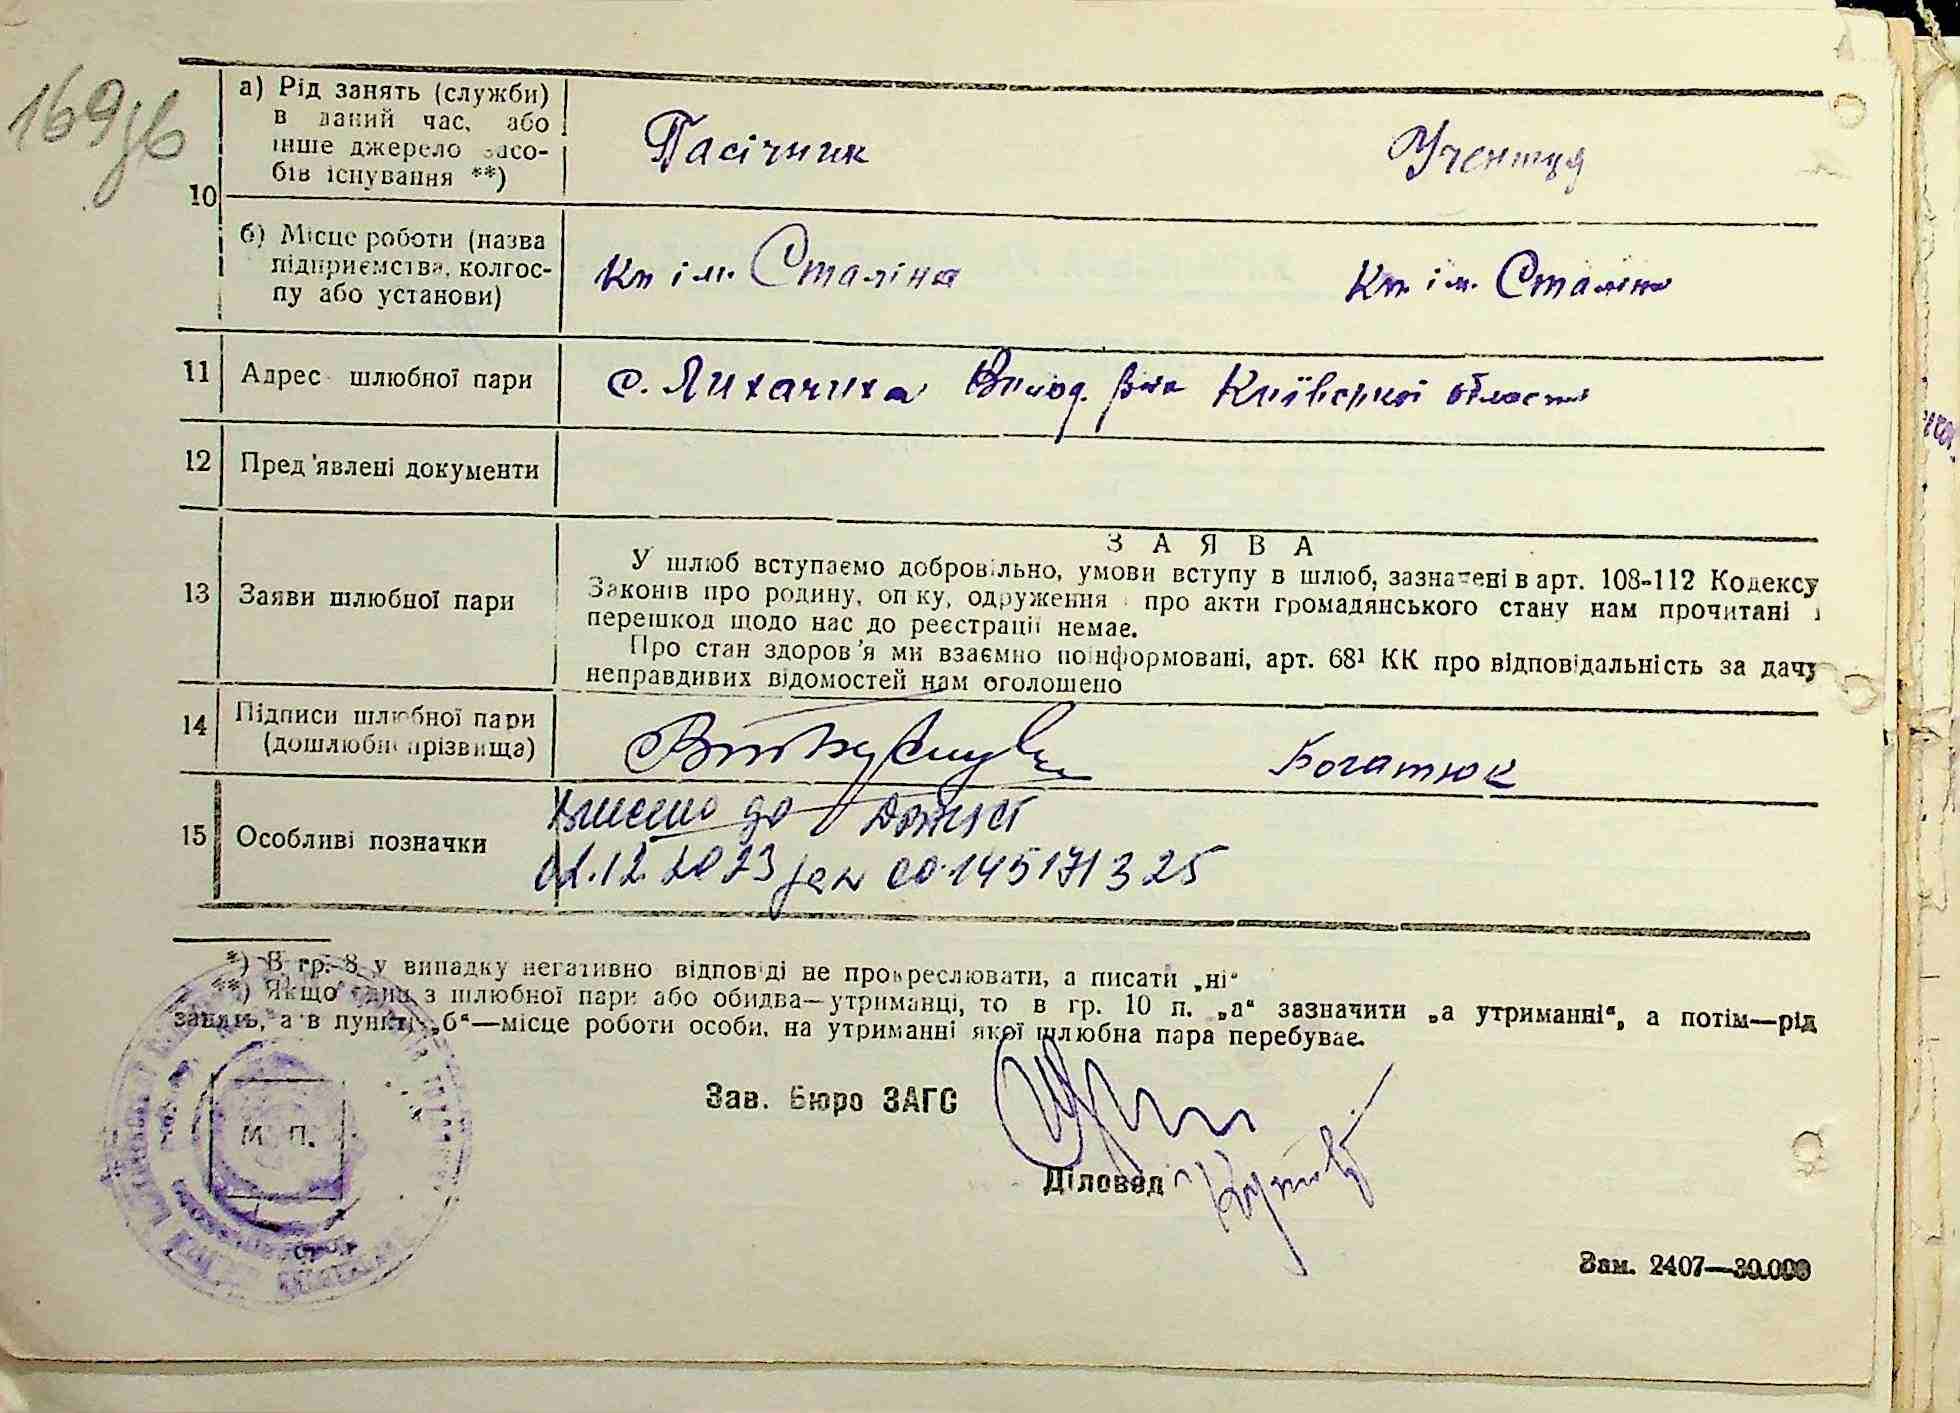 169зв
10
а) Рід занять (служби)
в даний час, або
інше джерело засо-
бів існування **)
Пасічник
Учениця
б) Місце роботи (назва
підприємства, колгос-
пу або установи)
Кп ім. Сталіна
Кп. ім. Сталіна
11 Адрес шлюбної пари
с. Лихачиха Київської області
12 Пред'явлені документи
13 Заяви шлюбної пари
ЗАЯВА
У шлюб вступаємо добровільно, умови вступу в шлюб, зазначені в арт. 108-112 Кодексу
Законів про родину, опіку, одруження і про акти громадянського стану нам прочитані і
перешкод щодо нас до реєстрації немає.
Про стан здоров'я ми взаємно поінформовані, арт. 68¹ КК про відповідальність за дачу
неправдивих відомостей нам оголошено
14 Підписи шлюбної пари
(дошлюбні прізвища)
Богатюк
15 Особливі позначки
Внесено до
02.12.2023 00145171325
*) В гр. 8 у випадку негативно відповіді не прокреслювати, а писати „ні“
**) Якщо один з шлюбної пари або обидва—утриманці, то в гр. 10 п. „а“ зазначити „а утриманні“, а потім—рід
занять, а в пункті „б“—місце роботи особи, на утриманні якої шлюбна пара перебуває.
М. П.
Зав. Бюро ЗАГС
Діловод
Зам. 2407—30.000